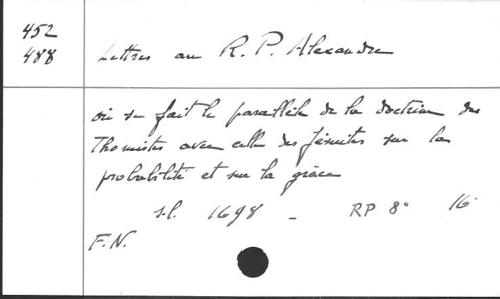 452
488 Lettres au R. P. Alexandre
où se fait le parallèle de la doctrine des
Thomistes avec celle des Jésuites sur la
probabilité et sur la grâce
s.l. 1698 - RP 8° 16
F.N.